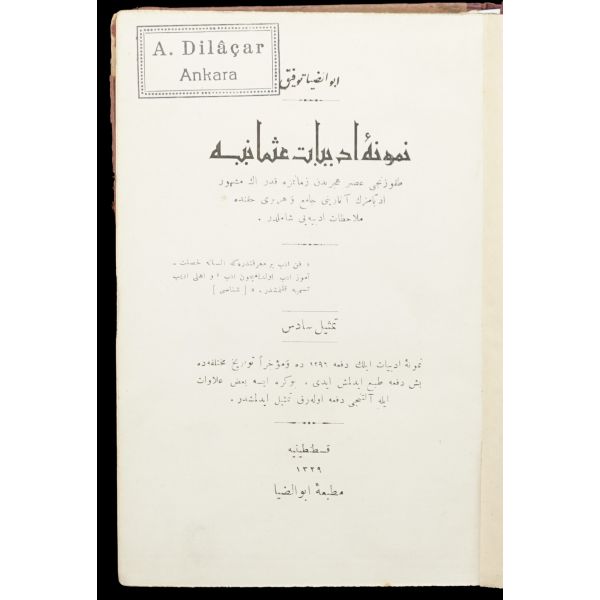 A. Dilâçar
Ankara
ابوالضیا توفیق
نمونهٔ ادبیات عثمانیه
طقوزنجی عصر هجریدن زمانمزه قدر اك مشهور
ادبامزك آثارینی جامع و هربری حقنده
ملاحظات ادبیه‌یی شاملدر .
« فن ادب بر معرفتدركه انسانه خصلت ـ
آموز ادب اولدیغیچون ادب ، و اهلی ادیب
تسمیه قلنمشدر . » [ شناسی ]
تمثیل سادس
نمونهٔ ادبیات ایلك دفعه ١٢٩٦ ده و مؤخراً تواریخ مختلفه‌ده
بش دفعه طبع ایدلمش ایدی . بو كره ایسه بعض علاوات
ایله آلتنجی دفعه اوله‌رق تمثیل ایدلمشدر .
قسطنطینیه
١٣٢٩
مطبعهٔ ابوالضیا